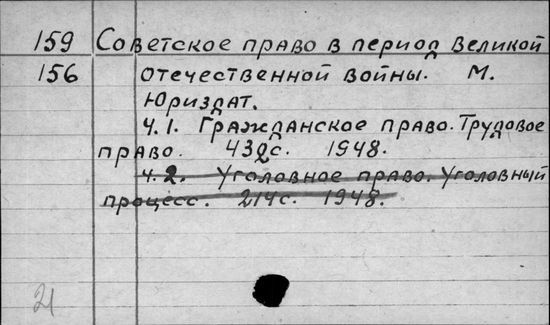 159 Советское право в период Великой
156 Отечественной войны. М.
Юриздат.
Ч.1. Гражданское право. Трудовое
право. 432с. 1948.
Ч.2. Уголовное право. Уголовный
процесс. 214с. 1948.
21